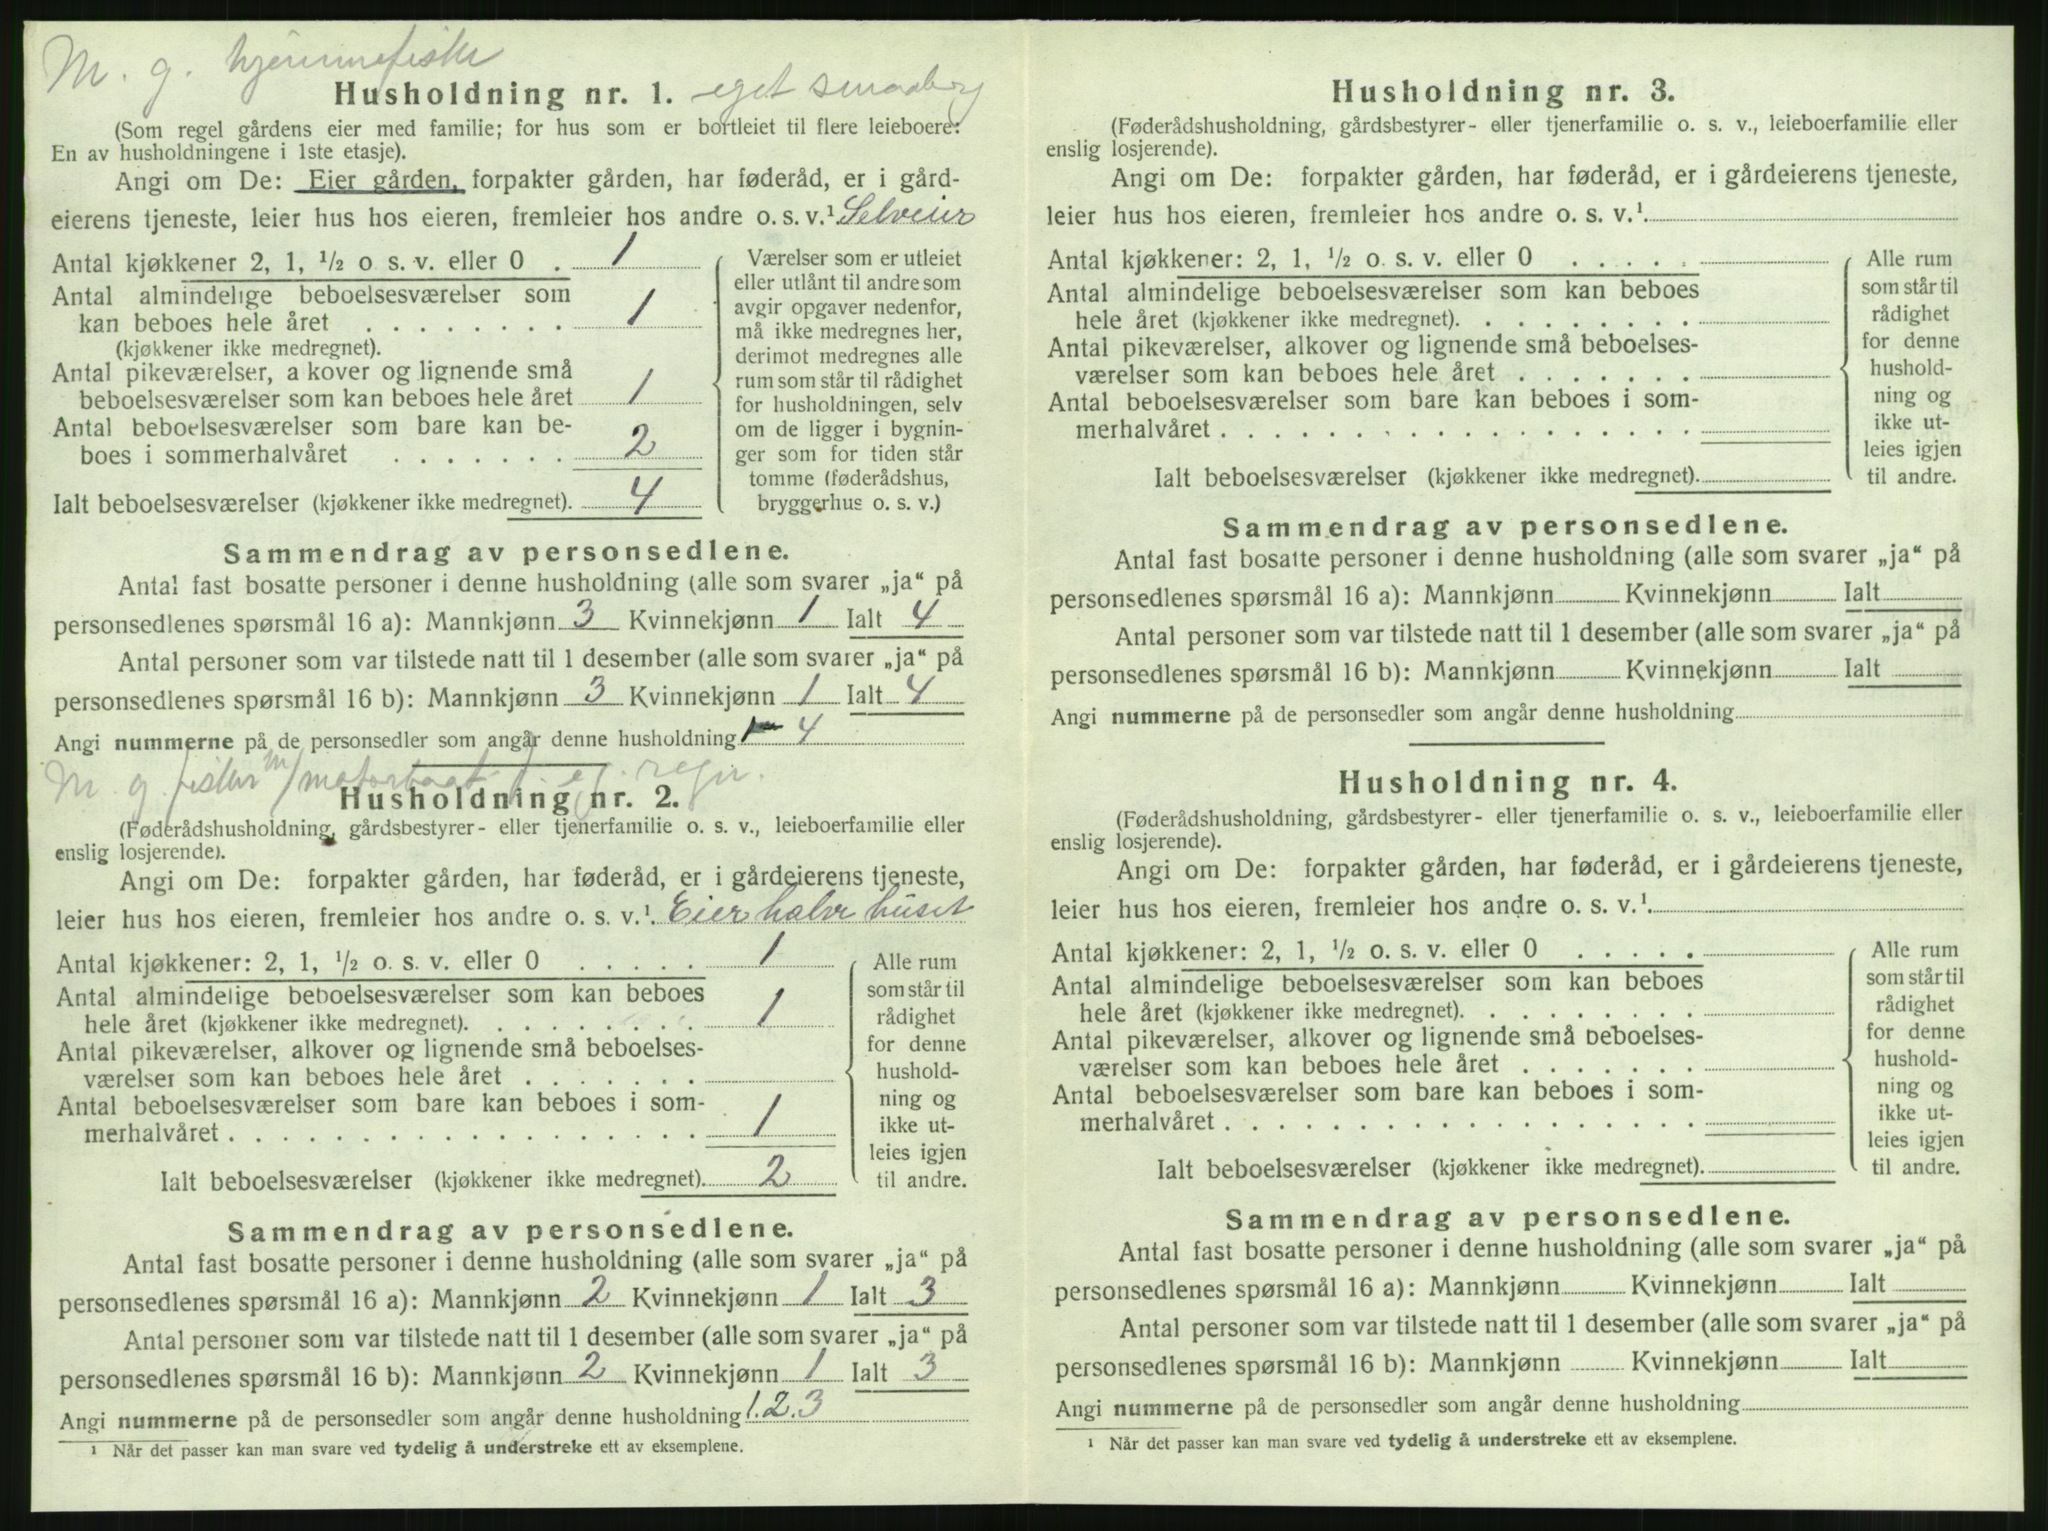 M. g. hjemmefisker
Husholdning nr. 1. eget smaabrug
(Som regel gårdens eier med familie; for hus som er bortleiet til flere leieboere:
En av husholdningene i 1ste etasje).
Angi om De: Eier gården, forpakter gården, har føderåd, er i gård-
eierens tjeneste, leier hus hos eieren, fremleier hos andre o. s. v.¹ Selveier
Antal kjøkkener 2, 1, ½ o s. v. eller 0 . 1
Antal almindelige beboelsesværelser som
kan beboes hele året . . . . . . . . 1
(kjøkkener ikke medregnet).
Antal pikeværelser, a kover og lignende små
beboelsesværelser som kan beboes hele året 1
Antal beboelsesværelser som bare kan be-
boes i sommerhalvåret . . . . . . . 2
Ialt beboelsesværelser (kjøkkener ikke medregnet). 4
Værelser som er utleiet
eller utlånt til andre som
avgir opgaver nedenfor,
må ikke medregnes her,
derimot medregnes alle
rum som står til rådighet
for husholdningen, selv
om de ligger i bygnin-
ger som for tiden står
tomme (føderådshus,
bryggerhus o. s. v.)
Sammendrag av personsedlene.
Antal fast bosatte personer i denne husholdning (alle som svarer „ja“ på
personsedlenes spørsmål 16 a): Mannkjønn 3 Kvinnekjønn 1 Ialt 4
Antal personer som var tilstede natt til 1 desember (alle som svarer „ja“ på
personsedlenes spørsmål 16 b): Mannkjønn 3 Kvinnekjønn 1 Ialt 4
Angi nummerne på de personsedler som angår denne husholdning 1 — 4
M. g. fisker m/motorbaat f. eg. regn.
Husholdning nr. 2.
(Føderådshusholdning, gårdsbestyrer- eller tjenerfamilie o. s. v., leieboerfamilie eller
enslig losjerende).
Angi om De: forpakter gården, har føderåd, er i gårdeierens tjeneste,
leier hus hos eieren, fremleier hos andre o. s. v.¹. Eier halve huset
Antal kjøkkener: 2, 1, ½ o. s. v. eller 0 . . . . . 1
Antal almindelige beboelsesværelser som kan beboes
hele året (kjøkkener ikke medregnet). . . . . . . . . 1
Antal pikeværelser, alkover og lignende små beboelses-
værelser som kan beboes hele året . . . . . . .
Antal beboelsesværelser som bare kan beboes i som-
merhalvåret . . . . . . . . . . . . . . . . . . 1
Ialt beboelsesværelser (kjøkkener ikke medregnet). 2
Alle rum
som står til
rådighet
for denne
hushold-
ning og
ikke ut-
leies igjen
til andre.
Sammendrag av personsedlene.
Antal fast bosatte personer i denne husholdning (alle som svarer „ja“ på
personsedlenes spørsmål 16 a): Mannkjønn 2 Kvinnekjønn 1 Ialt 3
Antal personer som var tilstede natt til 1 desember (alle som svarer „ja“ på
personsedlenes spørsmål 16 b): Mannkjønn 2 Kvinnekjønn 1 Ialt 3
Angi nummerne på de personsedler som angår denne husholdning 1. 2. 3
¹ Når det passer kan man svare ved tydelig å understreke ett av eksemplene.
Husholdning nr. 3.
(Føderådshusholdning, gårdsbestyrer- eller tjenerfamilie o. s. v., leieboerfamilie eller
enslig losjerende).
Angi om De: forpakter gården, har føderåd, er i gårdeierens tjeneste,
leier hus hos eieren, fremleier hos andre o. s. v.¹.
Antal kjøkkener: 2, 1, ½ o. s. v. eller 0 . . . . .
Antal almindelige beboelsesværelser som kan beboes
hele året (kjøkkener ikke medregnet). . . . . . . . .
Antal pikeværelser, alkover og lignende små beboelses-
værelser som kan beboes hele året . . . . . . .
Antal beboelsesværelser som bare kan beboes i som-
merhalvåret . . . . . . . . . . . . . . . . . .
Ialt beboelsesværelser (kjøkkener ikke medregnet).
Alle rum
som står til
rådighet
for denne
hushold-
ning og
ikke ut-
leies igjen
til andre.
Sammendrag av personsedlene.
Antal fast bosatte personer i denne husholdning (alle som svarer „ja“ på
personsedlenes spørsmål 16 a): Mannkjønn Kvinnekjønn Ialt
Antal personer som var tilstede natt til 1 desember (alle som svarer „ja“ på
personsedlenes spørsmål 16 b): Mannkjønn Kvinnekjønn Ialt
Angi nummerne på de personsedler som angår denne husholdning
Husholdning nr. 4.
(Føderådshusholdning, gårdsbestyrer- eller tjenerfamilie o. s. v., leieboerfamilie eller
enslig losjerende).
Angi om De: forpakter gården, har føderåd, er i gårdeierens tjeneste,
leier hus hos eieren, fremleier hos andre o. s. v.¹.
Antal kjøkkener: 2, 1, ½ o. s. v. eller 0 . . . . .
Antal almindelige beboelsesværelser som kan beboes
hele året (kjøkkener ikke medregnet). . . . . . . . .
Antal pikeværelser, alkover og lignende små beboelses-
værelser som kan beboes hele året . . . . . . .
Antal beboelsesværelser som bare kan beboes i som-
merhalvåret . . . . . . . . . . . . . . . . . .
Ialt beboelsesværelser (kjøkkener ikke medregnet).
Alle rum
som står til
rådighet
for denne
hushold-
ning og
ikke ut-
leies igjen
til andre.
Sammendrag av personsedlene.
Antal fast bosatte personer i denne husholdning (alle som svarer „ja“ på
personsedlenes spørsmål 16 a): Mannkjønn Kvinnekjønn Ialt
Antal personer som var tilstede natt til 1 desember (alle som svarer „ja“ på
personsedlenes spørsmål 16 b): Mannkjønn Kvinnekjønn Ialt
Angi nummerne på de personsedler som angår denne husholdning
¹ Når det passer kan man svare ved tydelig å understreke ett av eksemplene.